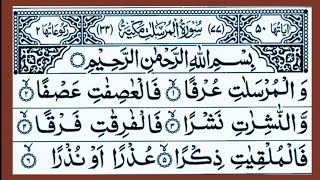 اٰیَاتُهَا ٥٠ (٧٧) سُوْرَةُ الْمُرْسَلٰتِ مَكِّیَّةٌ (٣٣) رُكُوْعَاتُهَا ٢
بِسْمِ اللّٰهِ الرَّحْمٰنِ الرَّحِیْمِ
وَ الْمُرْسَلٰتِ عُرْفًا ۝١ فَالْعٰصِفٰتِ عَصْفًا ۝٢
وَّ النّٰشِرٰتِ نَشْرًا ۝٣ فَالْفٰرِقٰتِ فَرْقًا ۝٤
فَالْمُلْقِیٰتِ ذِكْرًا ۝٥ عُذْرًا اَوْ نُذْرًا ۝٦